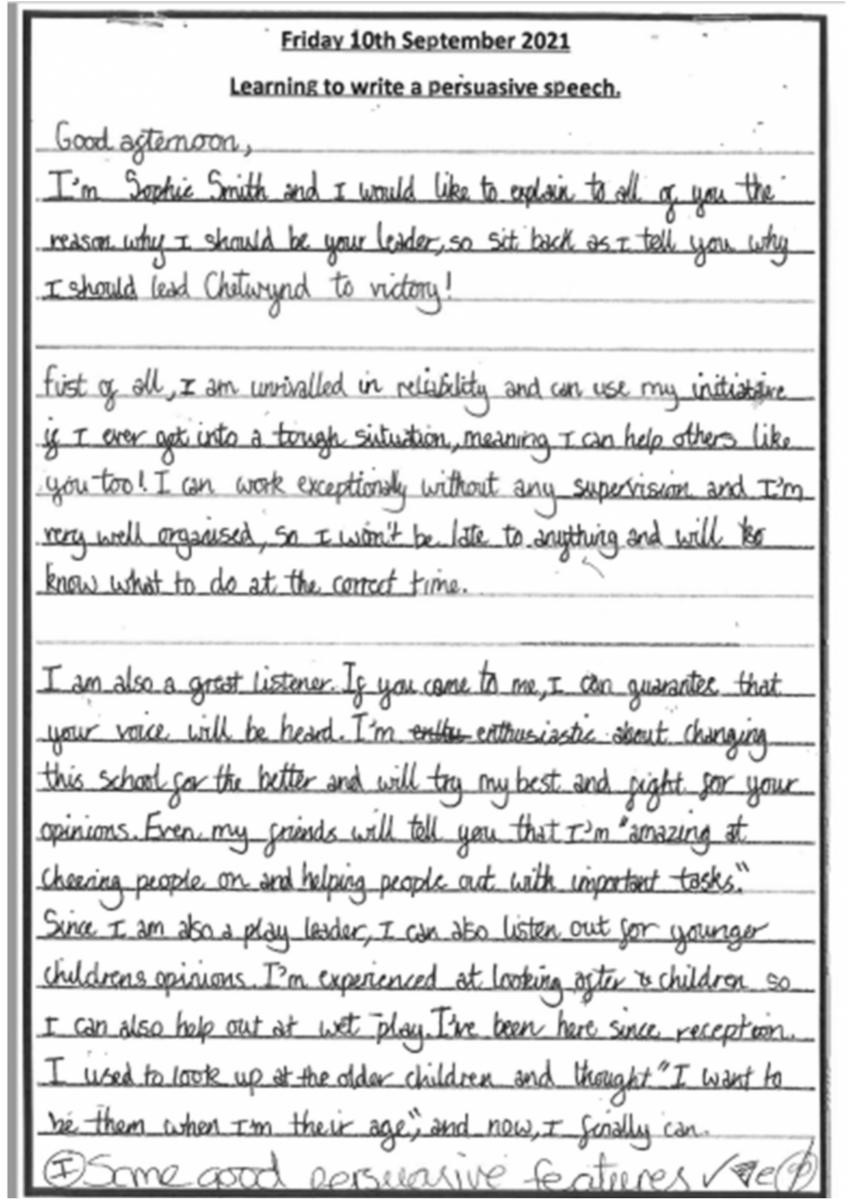 Friday 10th September 2021
Learning to write a persuasive speech.
Good afternoon,
I'm Sophie Smith and I would like to explain to all of you the
reason why I should be your leader, so sit back as I tell you why
I should lead Chetwynd to victory!
First of all, I am unrivalled in reliability and can use my initiative
if I ever get into a tough situation, meaning I can help others like
you too! I can work exceptionally without any supervision and I'm
very well organised, so I won't be late to anything and will
know what to do at the correct time.
I am also a great listener. If you come to me, I can guarantee that
your voice will be heard. I'm enthusiastic about changing
this school for the better and will try my best and fight for your
opinions. Even my friends will tell you that I'm "amazing at
cheering people on and helping people out with important tasks."
Since I am also a play leader, I can also listen out for younger
childrens opinions. I'm experienced at looking after children so
I can also help out at wet play. I've been here since reception.
I used to look up at the older children and thought "I want to
be them when I'm their age", and now, I finally can.
I Some good persuasive features ✓